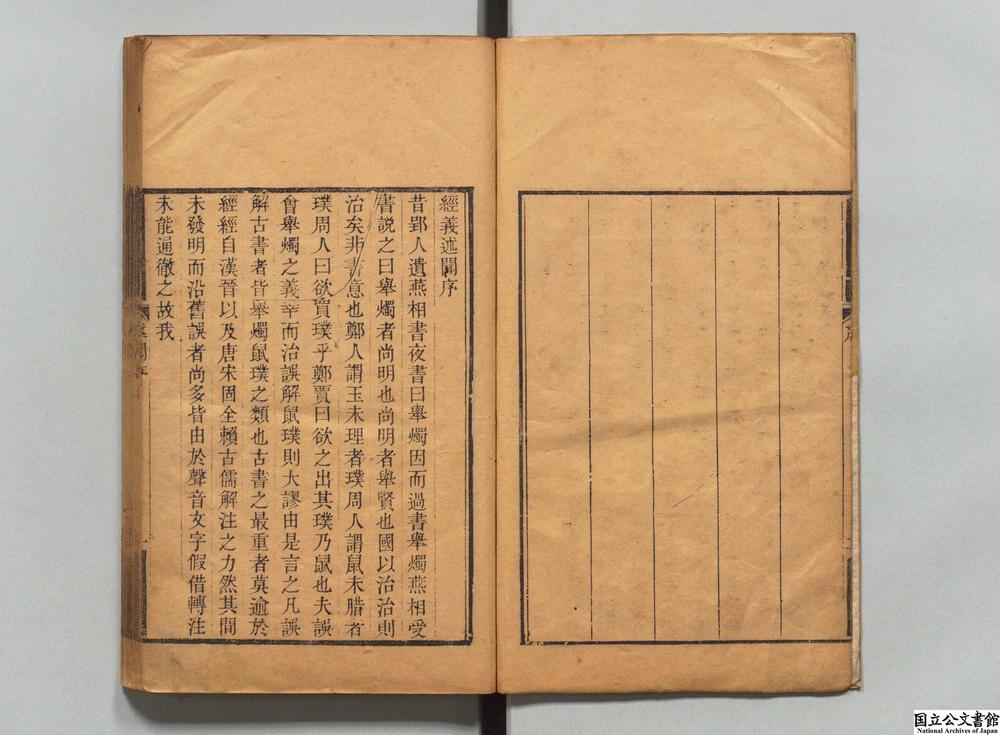 經義述聞序
昔郢人遺燕相書夜書曰舉燭因而過書舉燭燕相受
書說之曰舉燭者尚明也尚明者舉賢也國以治治則
治矣非書意也鄭人謂玉未理者璞周人謂鼠未腊者
璞周人曰欲買璞乎鄭賈曰欲之出其璞乃鼠也夫誤
會舉燭之義幸而治誤解鼠璞則大謬由是言之凡誤
解古書者皆舉燭鼠璞之類也古書之最重者莫逾於
經經自漢晉以及唐宋固全賴古儒解注之力然其間
未發明而沿舊誤者尚多皆由於聲音文字假借轉注
未能通徹之故我
国立公文書館
National Archives of Japan